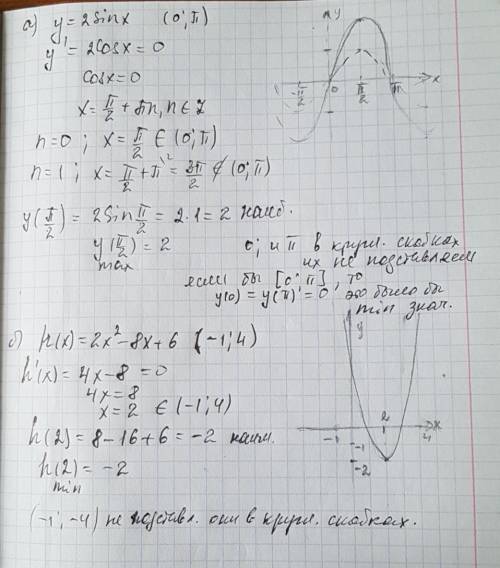 а) y = 2sinx (0; π)
y' = 2cosx = 0
cosx = 0
x = π/2 + πn, n ∈ Z
n = 0 ; x = π/2 ∈ (0; π)
n = 1 ; x = π/2 + π = 3π/2 ∉ (0; π)
y(π/2) = 2sin π/2 = 2·1 = 2 наиб.
y(π/2) = 2
max
0; и π в кругл. скобках
их не подставляем
если бы [0; π], то
y(0) = y(π) = 0 это было бы
min знач.
y
x
-π/2
0
π/2
π
б) h(x) = 2x² - 8x + 6 (-1; 4)
h'(x) = 4x - 8 = 0
4x = 8
x = 2 ∈ (-1; 4)
h(2) = 8 - 16 + 6 = -2 наим.
h(2) = -2
min
(-1; -4) не подставл. они в кругл. скобках.
y
x
-1
2
4
-1
-2